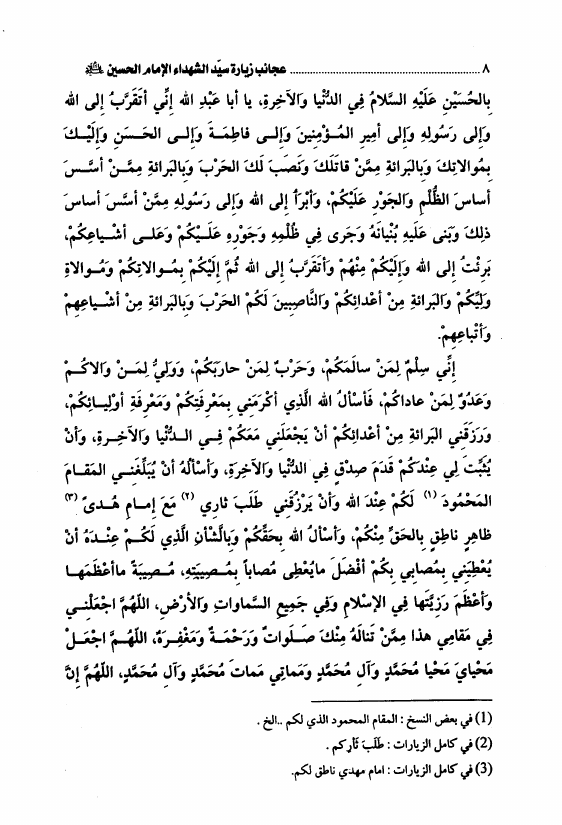 ٨ ................................................ عجائب زيارة سيّد الشهداء الإمام الحسين عليه السلام
بِالحُسَيْنِ عَلَيْهِ السَّلامُ فِي الدُّنْيا وَالآخِرَةِ، يا أبا عَبْدِ الله إنِّي أتَقَرَّبُ إلى الله
وَإلى رَسُولِهِ وَإلى أمِيرِ المُؤْمِنينَ وَإلى فاطِمَةَ وَإلى الحَسَنِ وَإلَيْكَ
بِمُوالاتِكَ وَبِالبَرائةِ مِمَّنْ قاتَلَكَ وَنَصَبَ لَكَ الحَرْبَ وَبِالبَرائةِ مِمَّنْ أسَّسَ
أساسَ الظُّلْمِ وَالجَوْرِ عَلَيْكُمْ، وَأبْرَأُ إلى الله وَإلى رَسُولِهِ مِمَّنْ أسَّسَ أساسَ
ذلِكَ وَبَنى عَلَيهِ بُنْيانَهُ وَجَرى فِي ظُلْمِهِ وَجَوْرِهِ عَلَيْكُمْ وَعَلى أشْياعِكُمْ،
بَرِئْتُ إلى الله وَإلَيْكُمْ مِنْهُمْ وَأتَقَرَّبُ إلى الله ثُمَّ إلَيْكُمْ بِمُوالاتِكُمْ وَمُوالاةِ
وَلِيِّكُمْ وَالبَرائةِ مِنْ أعْدائِكُمْ وَالنَّاصِبينَ لَكُمْ الحَرْبَ وَبِالبَرائةِ مِنْ أشْياعِهِمْ
وَأتْباعِهِمْ.
إنِّي سِلْمٌ لِمَنْ سالَمَكُمْ، وَحَرْبٌ لِمَنْ حارَبَكُمْ، وَوَلِيٌّ لِمَنْ وَالاكُمْ
وَعَدُوٌّ لِمَنْ عاداكُمْ، فَأسْألُ الله الَّذِي أكْرَمَنِي بِمَعْرِفَتِكُمْ وَمَعْرِفَةِ أوْلِيائِكُمْ،
وَرَزَقَنِي البَرائةَ مِنْ أعْدائِكُمْ أنْ يَجْعَلَنِي مَعَكُمْ فِي الدُّنْيا وَالآخِرَةِ، وَأنْ
يُثَبِّتَ لِي عِنْدَكُمْ قَدَمَ صِدْقٍ فِي الدُّنْيا وَالآخِرَةِ، وَأسْألُهُ أنْ يُبَلِّغَنِي المَقامَ
المَحْمُودَ (١) لَكُمْ عِنْدَ الله وَأنْ يَرْزُقَنِي طَلَبَ ثاري (٢) مَعَ إمامِ هُدىً (٣)
ظاهِرٍ ناطِقٍ بِالحَقِّ مِنْكُمْ، وَأسْألُ الله بِحَقِّكُمْ وَبِالشَّأنِ الَّذِي لَكُمْ عِنْدَهُ أنْ
يُعْطِيَنِي بِمُصابِي بِكُمْ أفْضَلَ مايُعْطِى مُصاباً بِمُصِيبَتِهِ، مُصِيبَةً ماأعْظَمَها
وَأعْظَمَ رَزِيَّتَها فِي الإسْلامِ وَفِي جَمِيعِ السَّماواتِ وَالأرْضِ، اللّهُمَّ اجْعَلْنِي
فِي مَقامِي هذا مِمَّنْ تَنالُهُ مِنْكَ صَلَواتٌ وَرَحْمَةٌ وَمَغْفِرَةٌ، اللّهُمَّ اجْعَلْ
مَحْيايَ مَحْيا مُحَمَّدٍ وَآلِ مُحَمَّدٍ وَمَماتِي مَماتَ مُحَمَّدٍ وَآلِ مُحَمَّدٍ، اللّهُمَّ إنَّ
(1) في بعض النسخ : المقام المحمود الذي لكم ..الخ .
(2) في كامل الزيارات : طَلَبَ ثَأرِكم .
(3) في كامل الزيارات : امام مهدي ناطق لكم.